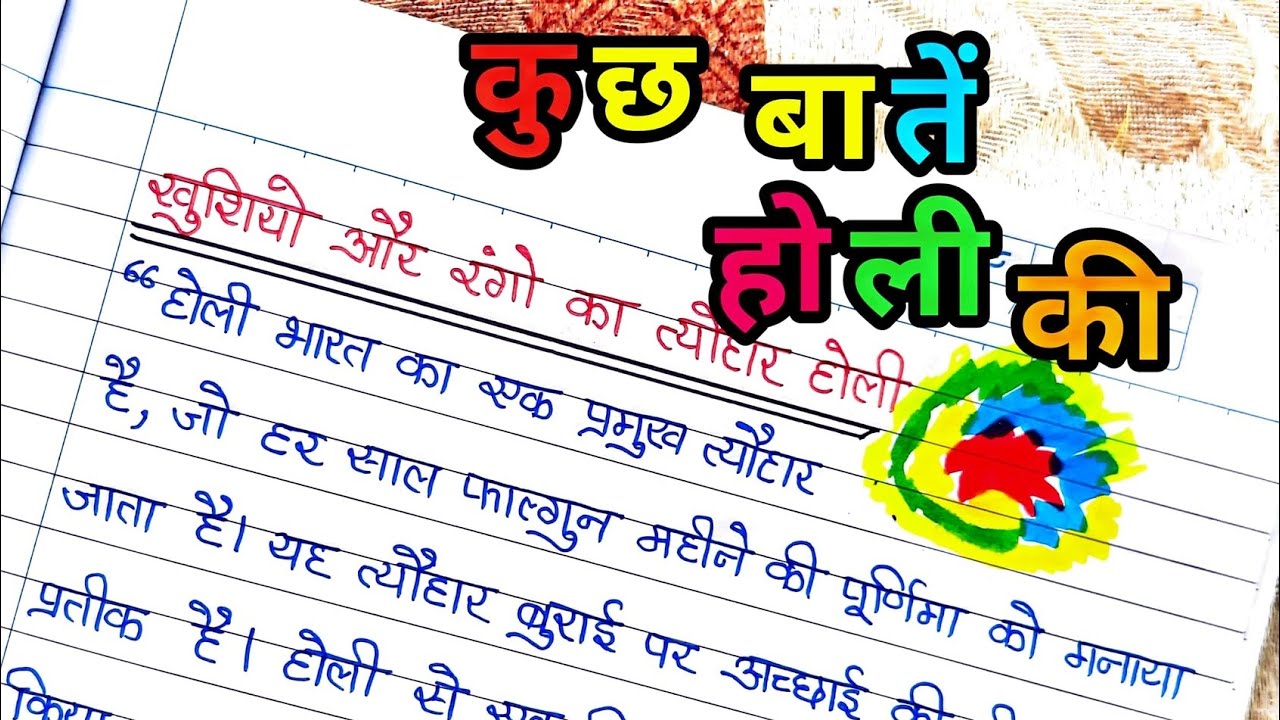 कुछ बातें
होली की
खुशियो और रंगो का त्यौहार होली
“होली भारत का एक प्रमुख त्यौहार
है, जो हर साल फाल्गुन महीने की पूर्णिमा को मनाया
जाता है। यह त्यौहार बुराई पर अच्छाई की
प्रतीक है। होली से